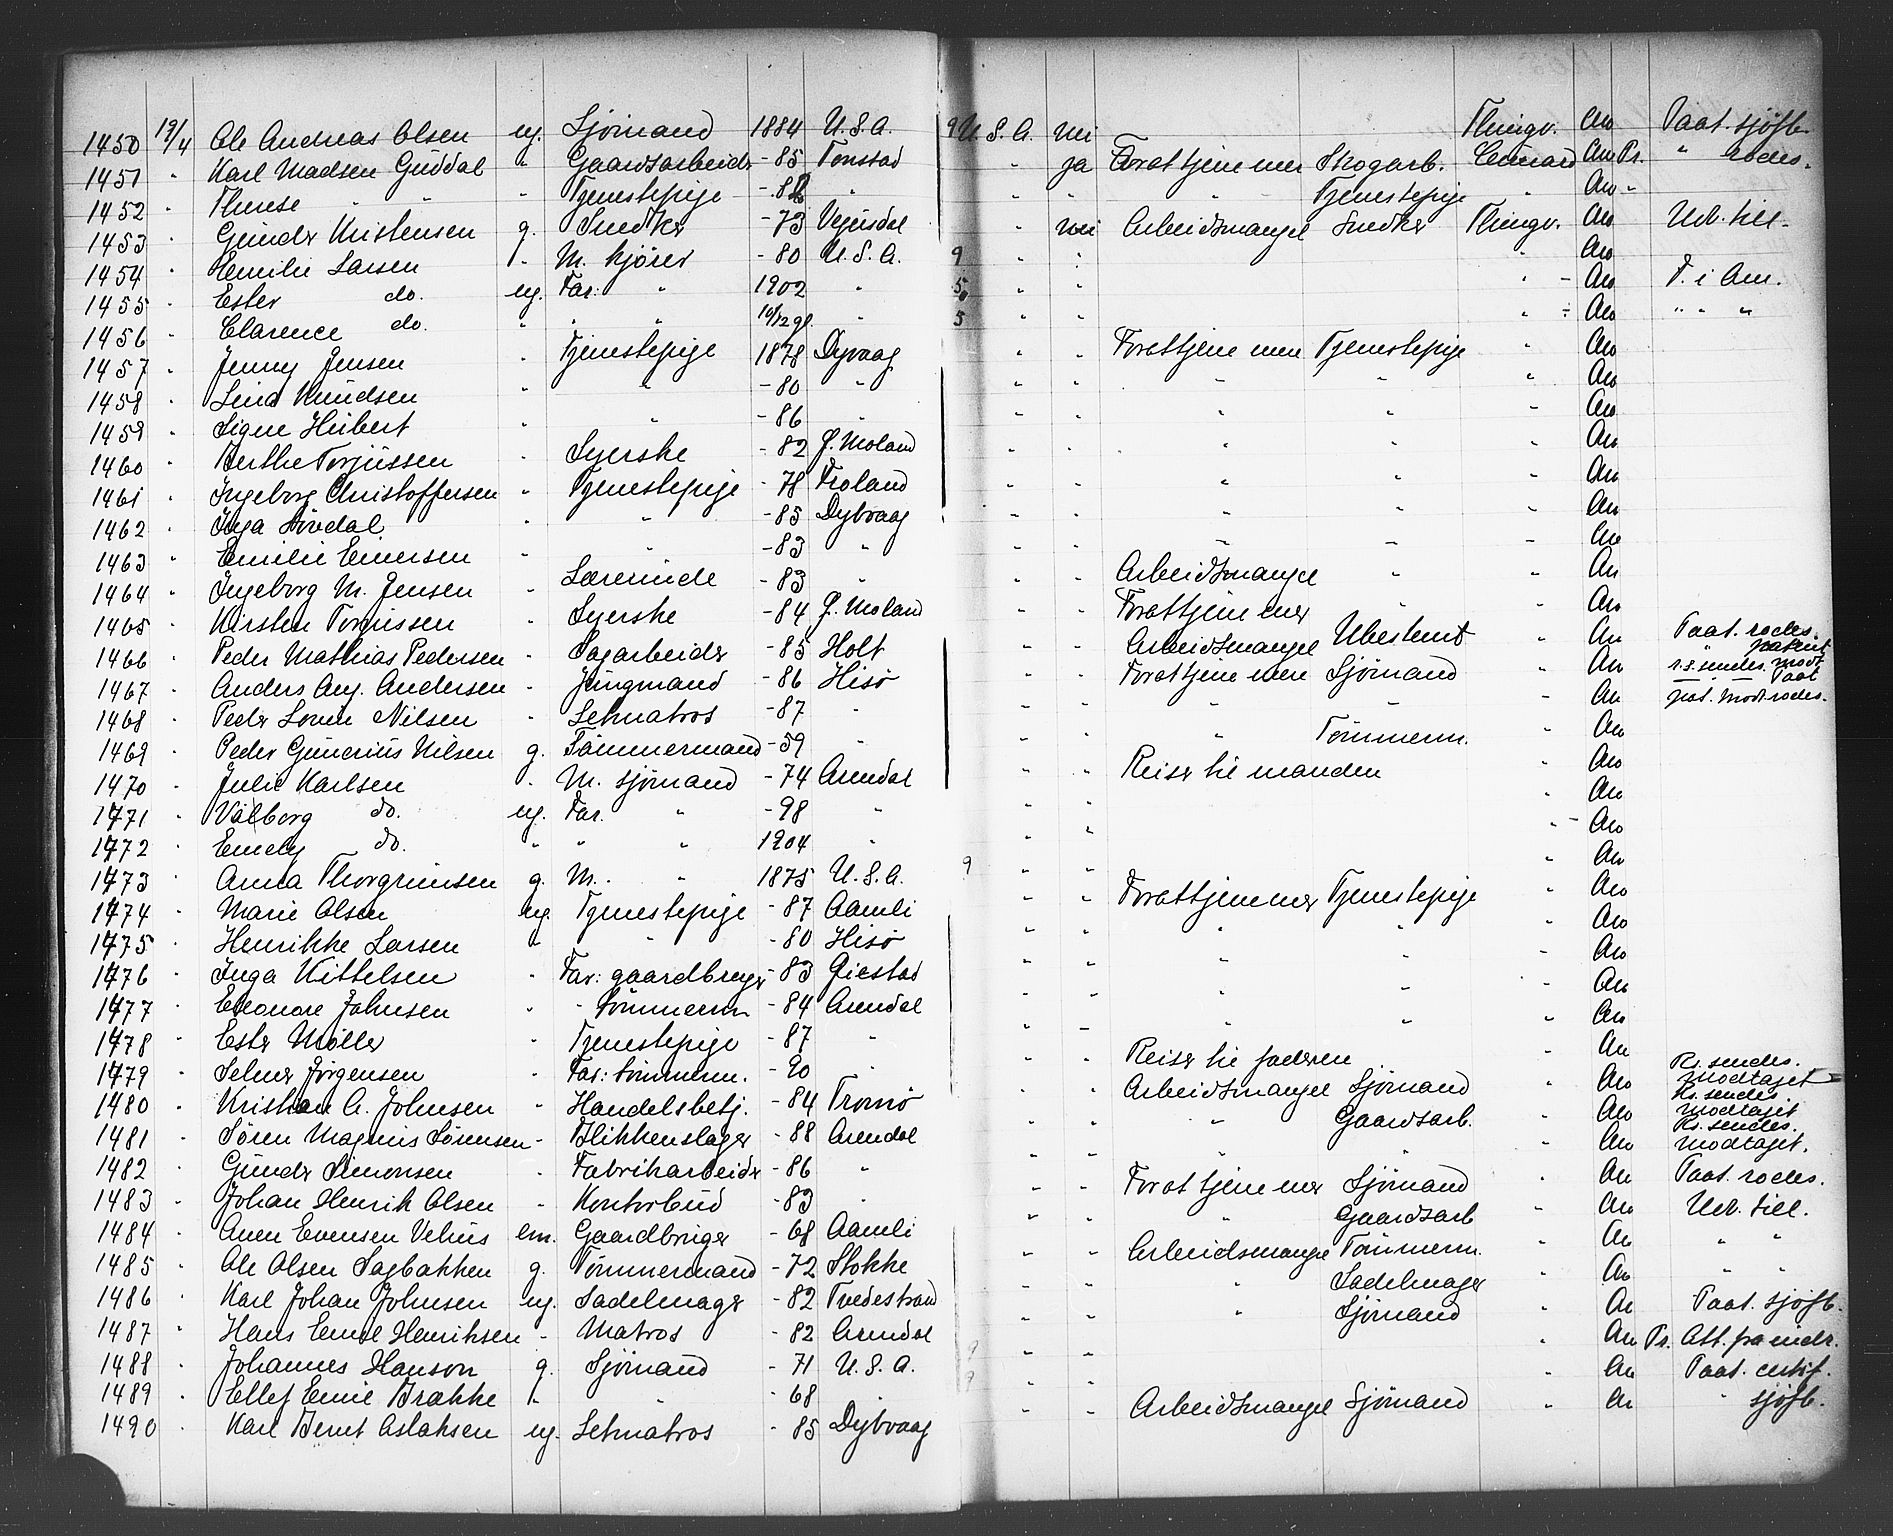 1450 19/4 Ole Andreas Olsen ug. Sjømand 1884 U.S.A. 9 U.S.A. nei Thingv. An Paat. sjøfb.
1451 " Karl Madsen Guddal " Gaardsarbeider -85 Tonstad " ja Foretttjenmer Skogarb. Cunard An Pr. " rodes.
1452 " Therese " " " Tjenestepige -82 " " " " Tjenestepige " An "
1453 " Gunder Kristensen g. Snedker -73 Vegusdal " nei Arbeidsmangel Snedker Thingv. An Udv. till.
1454 " Emilie Larsen " M. kjører -80 U.S.A. 9 " " " An
1455 " Ester do. ug. Far: " 1902 " 5 " " " - An F. i Am.
1456 " Clarence do. " " " 10/12 90 " 5 " " " An " " "
1457 " Jenny Jensen " Tjenestepige 1878 Dyvaag " " Foretttjenmer Tjenestepige An
1458 " Lina Knudsen " " -80 " " " " " " An
1459 " Signe Hubert " " -86 " " " " " " An
1460 " Berthe Torjussen Syerske -82 Ø. Moland " " " " " An
1461 " Ingeborg Christoffersen " Tjenestepige -78 Froland " " " " " An
1462 " Inga " " -85 Dybvaag " " " " " An
1463 " Emilie Einersen " " -83 " " " " " " An
1464 " Ingeborg M. Jensen " Lærerinde -83 " " " Arbeidsmangel " " An
1465 " Kirsten Torjussen " Syerske -84 Ø. Moland " " Foretttjenmer " " An
1466 " Peder Mathias Pedersen " Sagarbeider -85 Holt " " Arbeidsmangel Ubestemt " An Paat. rodes.
1467 " Anders Aug. Andersen " Jungmand -86 Hisø " " Foretttjenmer Sjømand " An " patent r.s. sendes. modt
1468 " Peder Loven Nilsen " Letmatros -87 " " " " " " An Paat pat. modt. rodes.
1469 " Peder Gunerius Nilsen g. Tømmermand -59 " " " " Tømmerm. " An
1470 " Julie Karlsen " M. sjømand -74 Arendal " " Reiser til manden An
1471 " Valborg do. ug. Far. " -98 " " " " An
1472 " Emely do. " " " 1904 " " " " - An
1473 " Anna Thorgrimsen g. M. " 1875 U.S.A. 9 " " " An
1474 " Marie Olsen ug. Tjenestepige -87 Aamli " " Foretttjenmer Tjenestepige An
1475 " Henrikke Larsen " " -80 Hisø " " " " " An
1476 " Inga Kittelsen " Far: gaardbruger -83 Giestad " " " " - An
1477 " Eleonore Johnsen " " tømmerm -84 Arendal " " " " " An
1478 " Ester Møller " Tjenestepige -87 " " " " " " An
1479 " Selmer Jørgensen " Far: tømmerm. -90 " " " Reiser til faderen " An
1480 " Kristian A. Johnsen " Handelsbetj. -84 Tromø " Arbeidsmangel Sjømand An Rs. sendes. modtaget
1481 " Søren Magnus Sørensen " Blikkenslager -88 Arendal " " " Gaardsarb. " An Rs. sendes. modtaget
1482 " Gunder Simonsen " Fabrikarbeider -86 " " " " " " An Rs. sendes. modtaget.
1483 " Johan Henrik Olsen " Kontorbud -83 " " " Foretttjenmer Sjømand " An Paat. rodes.
1484 " Aanen Evensen Vehus em. Gaardbruger -68 Aamli " " " Gaardsarb " An Udv. till.
1485 " Ole Olsen Sagbakken g. Tømmermand -72 Stokke " " Arbeidsmangel Tømmerm. An " "
1486 " Karl Johan Johnsen ug. Sadelmager -82 Tvedestrand " " " Sadelmager " An " "
1487 " Hans Emil Henriksen " Matros -82 Arendal " " " Sjømand An Paat. sjøfb.
1488 " Johannes Hanson g. Sjømand -71 U.S.A. 9 " " " An Pr. Att. fra
1489 " Ellef Emil Brække " " -68 " 9 " " " An Paat. certif.
1490 " Karl Bernt Aslaksen ug. Letmatros -85 Dybvaag " " Arbeidsmangel Sjømand " An " sjøfb.